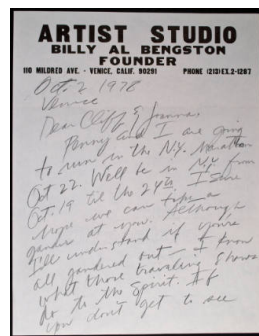 ARTIST STUDIO
BILLY AL BENGSTON
FOUNDER
110 MILDRED AVE. - VENICE, CALIF. 90291 PHONE (213) EX. 2-1287
Oct. 2 1978
Venice
Dear Cliff &
Penny and I are going
to run in the N.Y. Marathon
Oct 22. We'll be in NY from
Oct. 19 til the 24th. I sure
hope we can take a
gander at you. Although
I'll understand if you're
all gandered out - I know
what those traveling shows
do to the spirit. If
you don't get to see